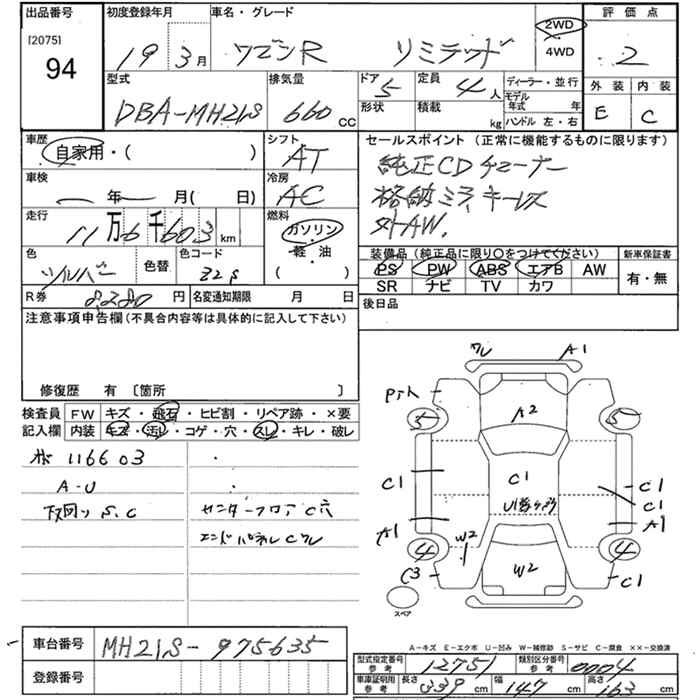 出品番号
[2075]
94
初度登録年月
19 3月
車名・グレード
ワゴンR リミテッド
2WD
4WD
評価点
2
型式
DBA-MH21S
排気量
660 cc
ドア
5
形状
定員
4人
積載
kg
ディーラー・並行
モデル年式 年
ハンドル 左・右
外装
E
内装
C
車歴
自家用・( )
シフト
AT
セールスポイント (正常に機能するものに限ります)
純正CDチューナー
格納ミラ、キーレス
社外AW.
車検
年 月( 日)
冷房
AC
走行
11万6千603km
燃料
ガソリン
・
軽・油
( )
色
シルバー
色替
色コード
Z2S
装備品 (純正品に限り〇をつけてください)
PS PW ABS エアB AW
SR ナビ TV カワ
新車保証書
有・無
R券
8280円
名変通知期限 月 日
後日品
注意事項申告欄 (不具合内容等は具体的に記入して下さい)
修復歴 有 〔箇所 〕
検査員記入欄
FW キズ・飛石・ヒビ割・リペア跡・×要
内装 キズ・汚レ・コゲ・穴・スレ・キレ・破レ
116603
A-U
下回り S.C
センターフロア C穴
エンドパネル Cワレ
ワレ
A1
A2
5
5
C1
C1
C1
C1
A1
A1
W2
W2
4
4
C3
C1
スペア
A-キズ E-エクボ U-凹み W-補修跡 S-サビ C-腐食 ××-交換済
車台番号
MH21S-975635
登録番号
型式指定番号 参考
12751
類別区分番号 参考
0004
車庫証明用 参考
長さ 339cm
幅 147cm
高さ 163cm